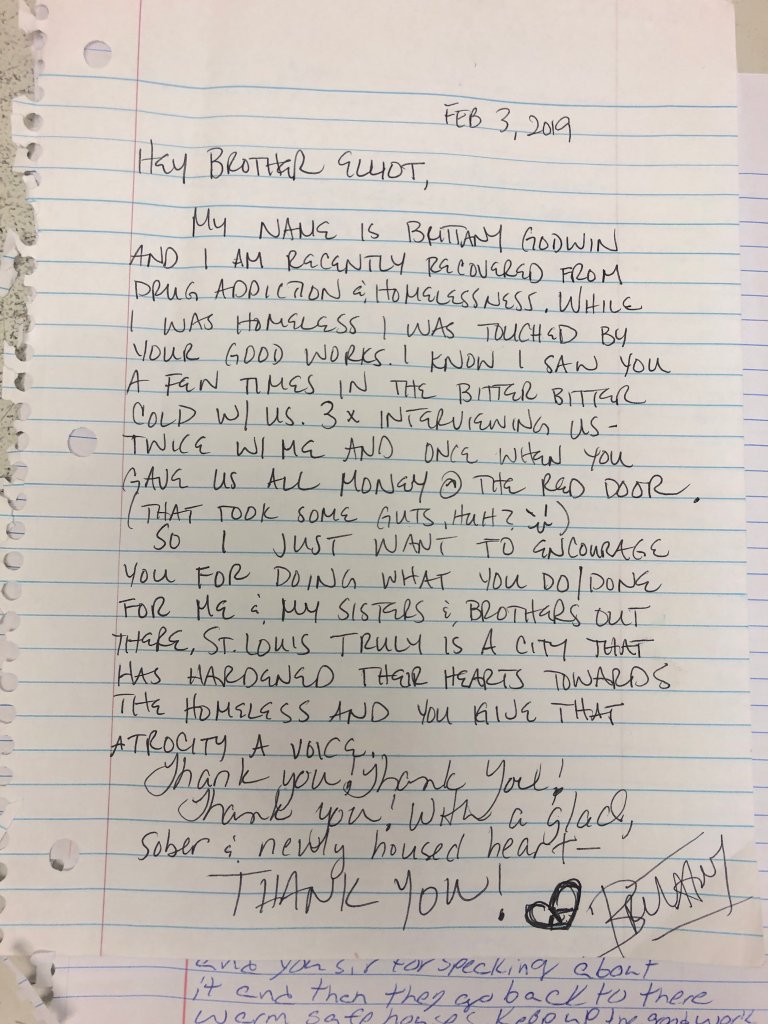 FEB 3, 2019
HEY BROTHER ELLIOT,
MY NAME IS BRITTANY GODWIN
AND I AM RECENTLY RECOVERED FROM
DRUG ADDICTION & HOMELESSNESS. WHILE
I WAS HOMELESS I WAS TOUCHED BY
YOUR GOOD WORKS. I KNOW I SAW YOU
A FEW TIMES IN THE BITTER BITTER
COLD W/ US. 3x INTERVIEWING US-
TWICE W/ ME AND ONCE WHEN YOU
GAVE US ALL MONEY @ THE RED DOOR.
(THAT TOOK SOME GUTS, HUH? :))
SO I JUST WANT TO ENCOURAGE
YOU FOR DOING WHAT YOU DO/DONE
FOR ME & MY SISTERS & BROTHERS OUT
THERE, ST. LOUIS TRULY IS A CITY THAT
HAS HARDENED THEIR HEARTS TOWARDS
THE HOMELESS AND YOU GIVE THAT
ATROCITY A VOICE.
Thank you! Thank You!
Thank you! With a glad,
sober & newly housed heart—
THANK YOU! Brittany
and you sir for specking about
it and then they go back to there
warm safe house's Keep up the good work